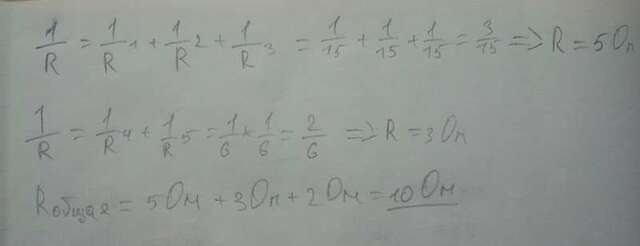 1/R = 1/R1 + 1/R2 + 1/R3 = 1/15 + 1/15 + 1/15 = 3/15 => R = 5Ом
1/R = 1/R4 + 1/R5 = 1/6 + 1/6 = 2/6 => R = 3Ом
Rобщая = 5Ом + 3Ом + 2Ом = 10 Ом